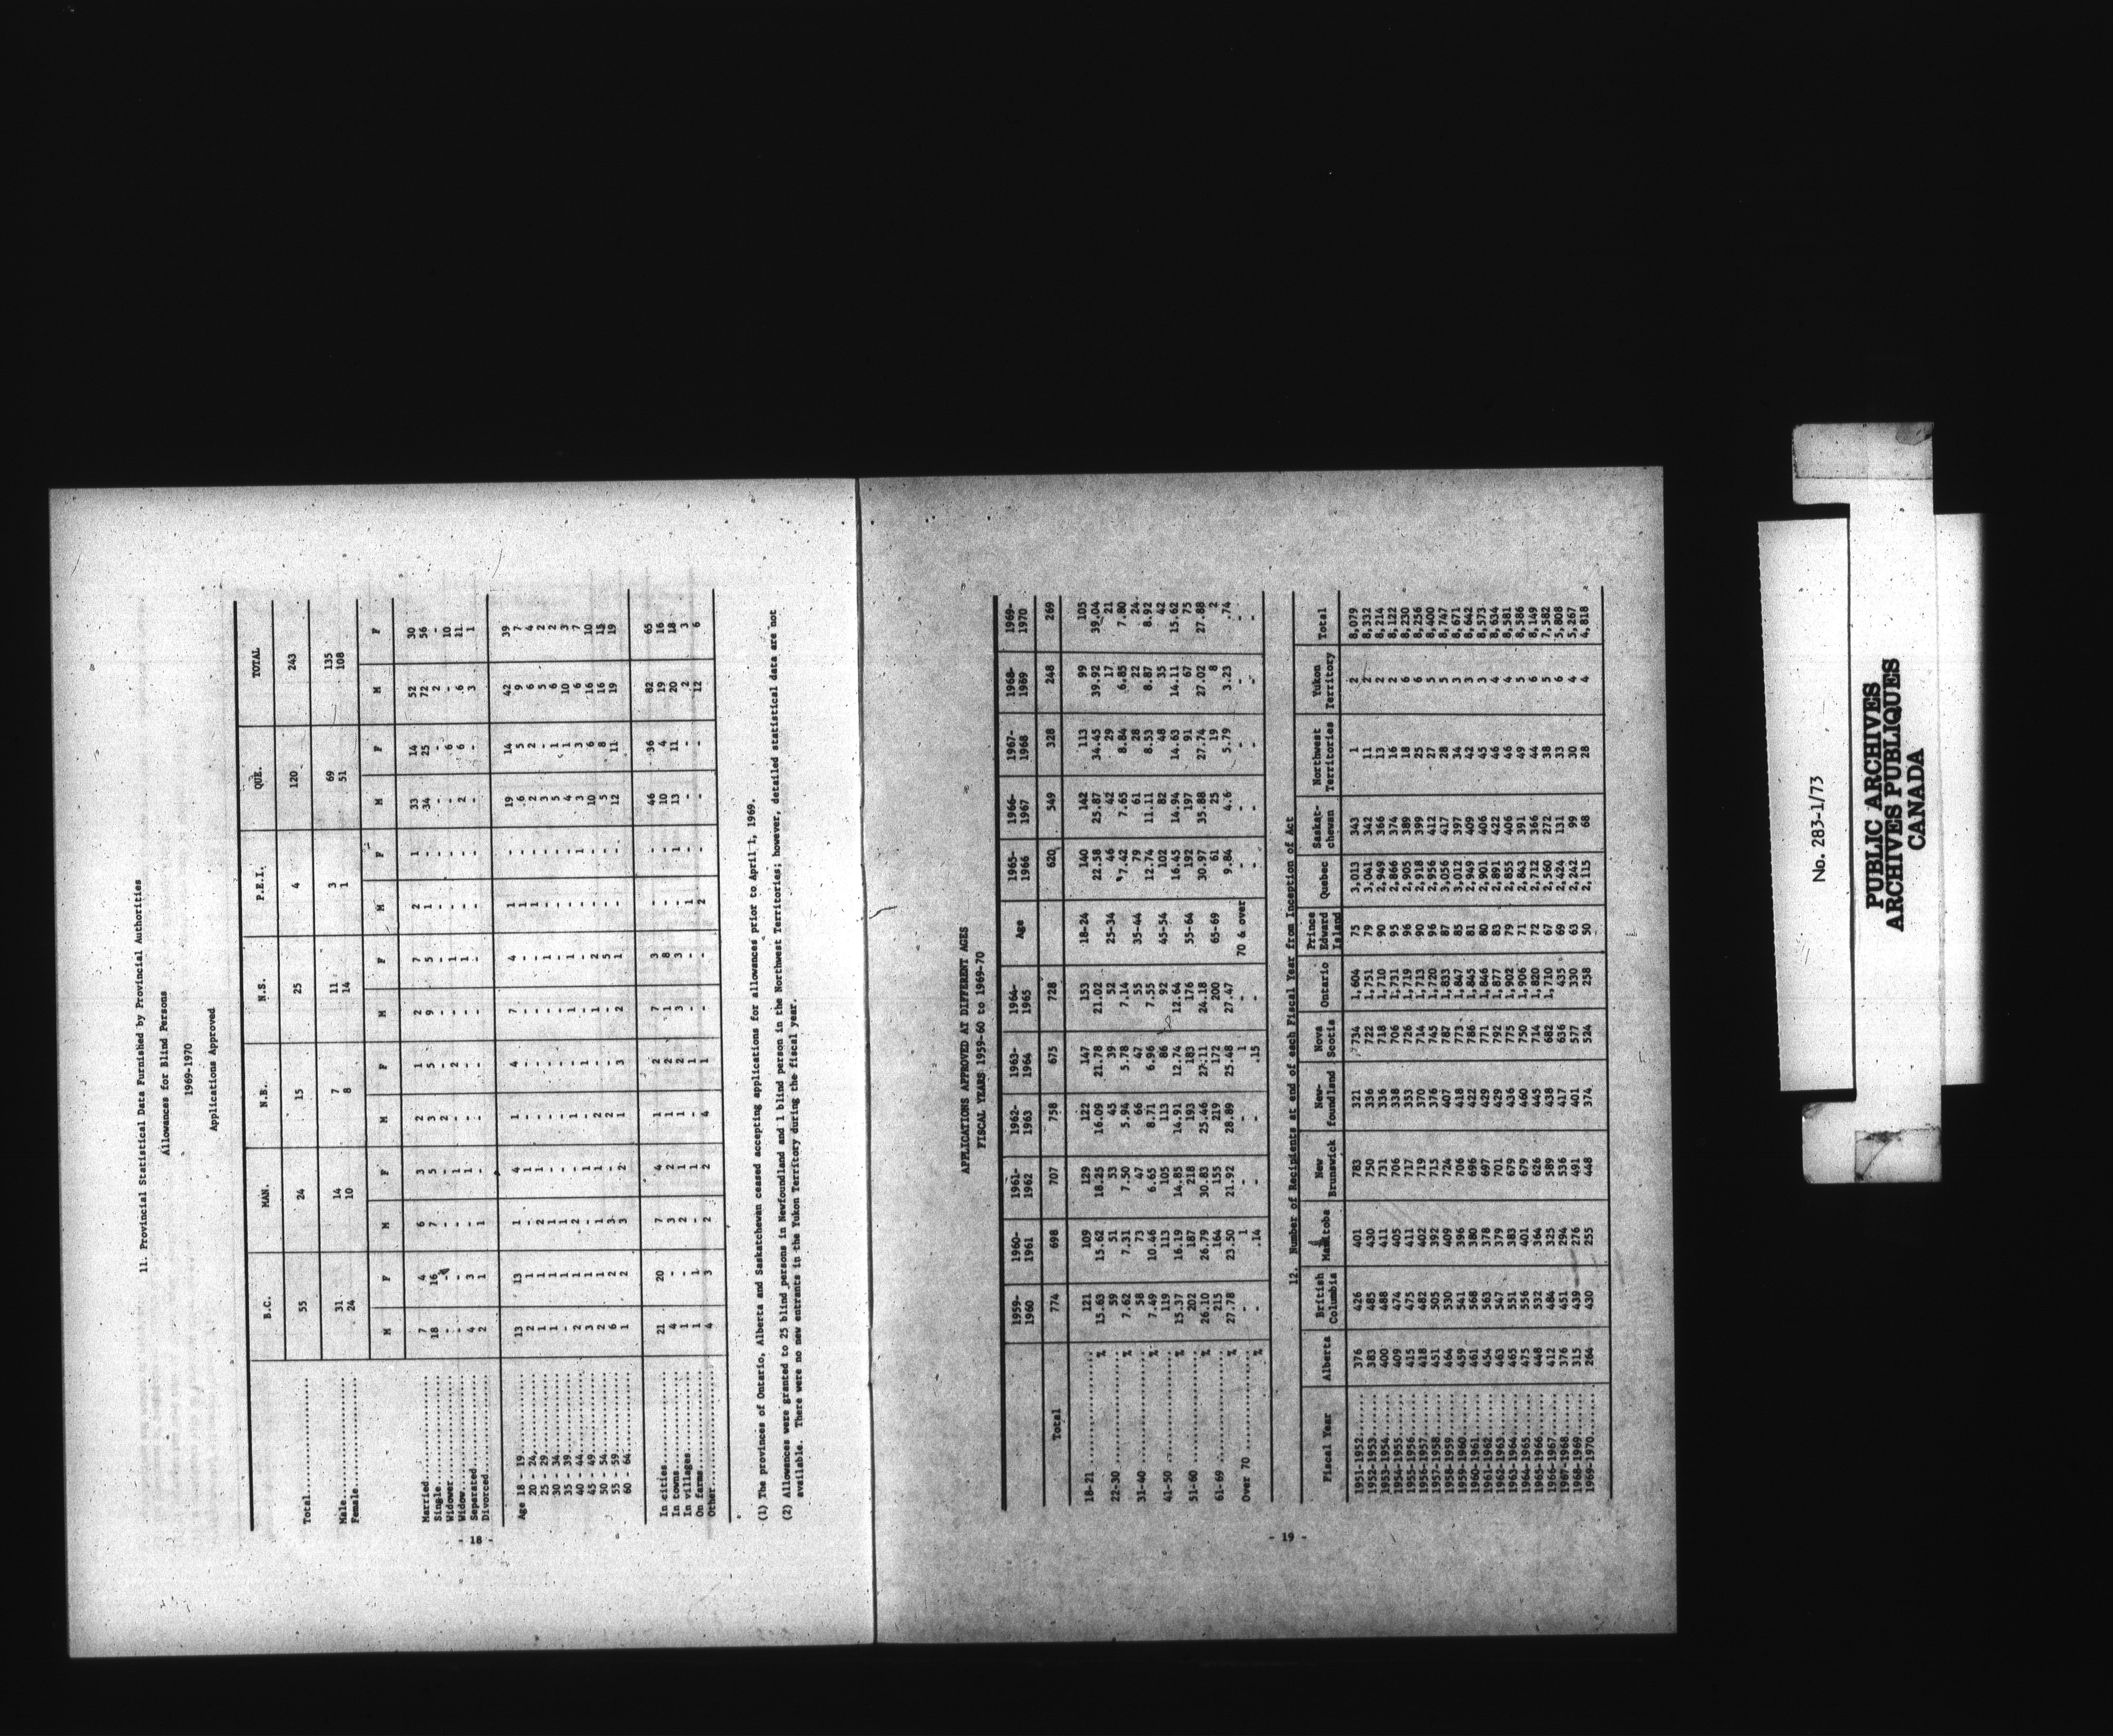 11. Provincial Statistical Data Furnished by Provincial Authorities
Allowances for Blind Persons
1969-1970
Applications Approved
B.C. MAN. N.B. N.S. P.E.I. QUE. TOTAL
Total 55 24 15 25 4 120 243
Male 31 14 7 11 3 69 135
Female 24 10 8 14 1 51 108
M F M F M F M F M F M F M F
Married 7 4 6 3 2 1 2 7 2 1 33 14 52 30
Single 18 16 7 5 3 5 9 5 1 - 34 25 72 56
Widower - - - - 2 - - - - - - - 2 -
Widow - - - 1 - 2 - 1 - - - 6 - 10
Separated 4 3 - 1 - - - 1 - - 2 6 6 11
Divorced 2 1 1 - - - - - - - - - 3 1
Age 18 - 19 13 13 1 4 1 4 7 4 1 - 19 14 42 39
20 - 24 2 1 - 1 - - - - 1 - 6 5 9 7
25 - 29 1 1 2 1 - - - - 1 - 2 2 6 4
30 - 34 1 1 1 - - - - 1 - - 3 - 5 2
35 - 39 - 1 1 - - - - - - - 5 1 6 2
40 - 44 2 1 2 - 1 - 1 1 - - 4 1 10 3
45 - 49 3 1 - 1 - 1 - - - 1 3 3 6 7
50 - 54 2 1 1 1 2 - 1 2 - - 10 6 16 10
55 - 59 6 2 3 - 2 - - 5 - - 5 8 16 15
60 - 64 1 2 3 2 1 3 2 1 - - 12 11 19 19
In cities 21 20 7 4 1 2 7 3 - - 46 36 82 65
In towns 4 - 3 2 1 2 1 8 - - 10 4 19 16
In villages 1 - 2 1 1 2 3 3 - 1 13 11 20 18
On farms 1 1 - 1 - 1 - - 1 - - - 2 3
Other 4 3 2 2 4 1 - - 2 - - - 12 6
(1) The provinces of Ontario, Alberta and Saskatchewan ceased accepting applications for allowances prior to April 1, 1969.
(2) Allowances were granted to 25 blind persons in Newfoundland and 1 blind person in the Northwest Territories; however, detailed statistical data are not
available. There were no new entrants in the Yukon Territory during the fiscal year.
- 18 -
APPLICATIONS APPROVED AT DIFFERENT AGES
FISCAL YEARS 1959-60 to 1969-70
1959-1960 1960-1961 1961-1962 1962-1963 1963-1964 1964-1965 Age 1965-1966 1966-1967 1967-1968 1968-1969 1969-1970
Total 774 698 707 758 675 728 620 549 328 248 269
18-21 121 109 129 122 147 153 18-24 140 142 113 99 105
% 15.63 15.62 18.25 16.09 21.78 21.02 22.58 25.87 34.45 39.92 39.04
22-30 59 51 53 45 39 52 25-34 46 42 29 17 21
% 7.62 7.31 7.50 5.94 5.78 7.14 7.42 7.65 8.84 6.85 7.80
31-40 58 73 47 66 47 55 35-44 79 61 28 22 24
% 7.49 10.46 6.65 8.71 6.96 7.55 12.74 11.11 8.53 8.87 8.92
41-50 119 113 105 113 86 92 45-54 102 82 48 35 42
% 15.37 16.19 14.85 14.91 12.74 12.64 16.45 14.94 14.63 14.11 15.62
51-60 202 187 218 193 183 176 55-64 192 197 91 67 75
% 26.10 26.79 30.83 25.46 27.11 24.18 30.97 35.88 27.74 27.02 27.88
61-69 215 164 155 219 172 200 65-69 61 25 19 8 2
% 27.78 23.50 21.92 28.89 25.48 27.47 9.84 4.6 5.79 3.23 .74
Over 70 - 1 - - 1 - 70 & over - - - - -
% - .14 - - .15 - - - - - -
12. Number of Recipients at end of each Fiscal Year from Inception of Act
Fiscal Year Alberta British Columbia Manitoba New Brunswick New-foundland Nova Scotia Ontario Prince Edward Island Quebec Saskat-chewan Northwest Territories Yukon Territory Total
1951-1952 376 426 401 783 321 734 1,604 75 3,013 343 1 2 8,079
1952-1953 383 485 430 750 336 722 1,751 79 3,041 342 11 2 8,332
1953-1954 400 488 411 731 336 718 1,710 90 2,949 366 13 2 8,214
1954-1955 409 474 405 706 338 706 1,731 95 2,866 374 16 2 8,122
1955-1956 415 475 411 717 353 726 1,719 96 2,905 389 18 6 8,230
1956-1957 418 482 402 719 370 714 1,713 90 2,918 399 25 6 8,256
1957-1958 451 505 392 715 376 745 1,720 96 2,956 412 27 5 8,400
1958-1959 464 530 409 724 407 787 1,833 87 3,056 417 28 5 8,747
1959-1960 459 541 396 706 418 773 1,847 85 3,012 397 34 3 8,671
1960-1961 461 568 380 696 422 786 1,845 81 2,949 409 42 3 8,642
1961-1962 454 563 378 697 429 771 1,846 80 2,901 406 45 3 8,573
1962-1963 463 547 379 701 429 792 1,877 83 2,891 422 46 4 8,634
1963-1964 465 551 383 679 436 775 1,902 79 2,855 406 46 4 8,581
1964-1965 475 556 401 679 460 750 1,906 71 2,843 391 49 5 8,586
1965-1966 448 532 364 626 445 714 1,820 72 2,712 366 44 6 8,149
1966-1967 412 484 325 589 438 682 1,710 67 2,560 272 38 5 7,582
1967-1968 376 451 294 536 417 636 435 69 2,424 131 33 6 5,808
1968-1969 315 439 276 491 401 577 330 63 2,242 99 30 4 5,267
1969-1970 264 430 255 448 374 524 258 50 2,115 68 28 4 4,818
- 19 -
No. 283-1/73
PUBLIC ARCHIVES
ARCHIVES PUBLIQUES
CANADA